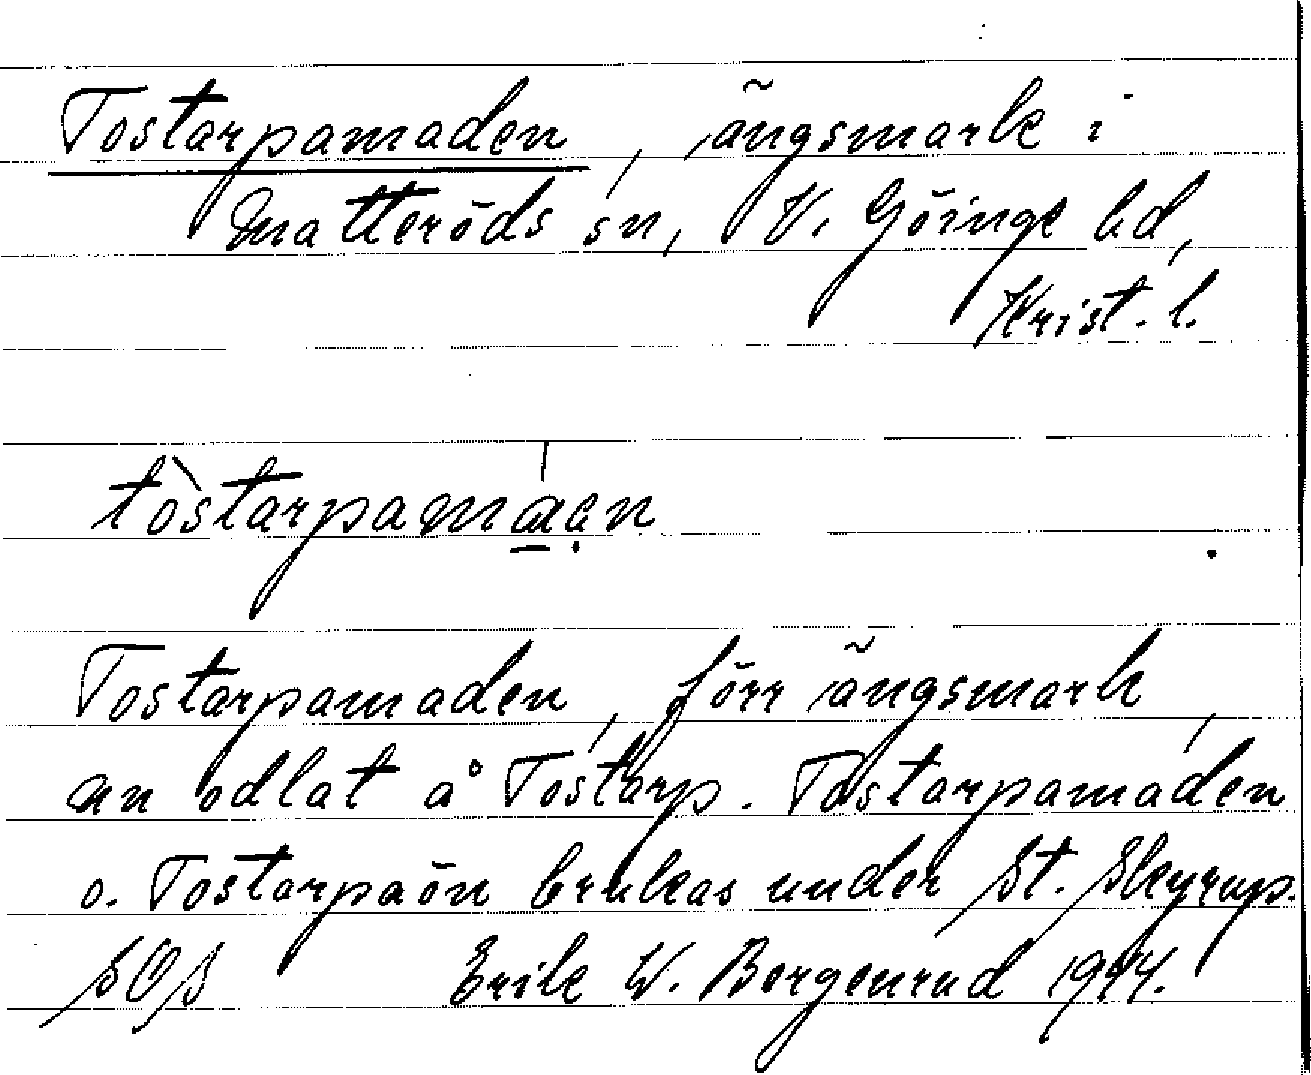 Tostarpamaden, ängsmark i
Matteröds sn, V. Göinge hd,
Krist. l.
tòstarpamáen
Tostarpamaden, förr ängsmark,
nu odlat å Tostarp. Tostarpamaden
o. Tostarpaön brukas under St. Skyrup.
SOS Erik W. Borgenrud 1944.